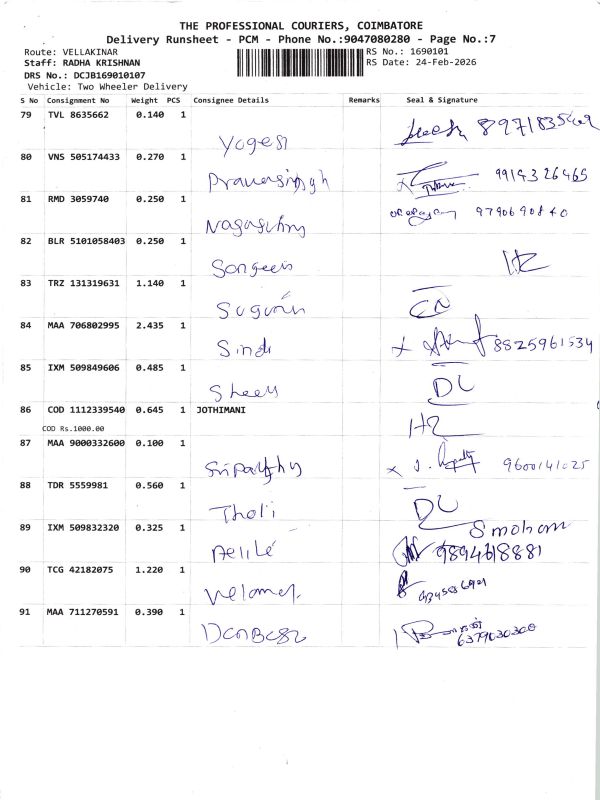 THE PROFESSIONAL COURIERS, COIMBATORE
Delivery Runsheet - PCM - Phone No.:9047080280 - Page No.:7
Route: VELLAKINAR
RS No.: 1690101
Staff: RADHA KRISHNAN
RS Date: 24-Feb-2026
DRS No.: DCJB169010107
Vehicle: Two Wheeler Delivery
S No Consignment No Weight PCS Consignee Details Remarks Seal & Signature
79 TVL 8635662 0.140 1
Yogesh
80 VNS 505174433 0.270 1
9914326465
81 RMD 3059740 0.250 1
9790690840
82 BLR 5101058403 0.250 1
83 TRZ 131319631 1.140 1
84 MAA 706802995 2.435 1
Sindi 8825961534
85 IXM 509849606 0.485 1
Sheeu DL
86 COD 1112339540 0.645 1 JOTHIMANI
COD Rs.1000.00
87 MAA 9000332600 0.100 1
9600141025
88 TDR 5559981 0.560 1
Tholi DL
89 IXM 509832320 0.325 1
Smohan
9894618881
90 TCG 42182075 1.220 1
91 MAA 711270591 0.390 1
6379030300